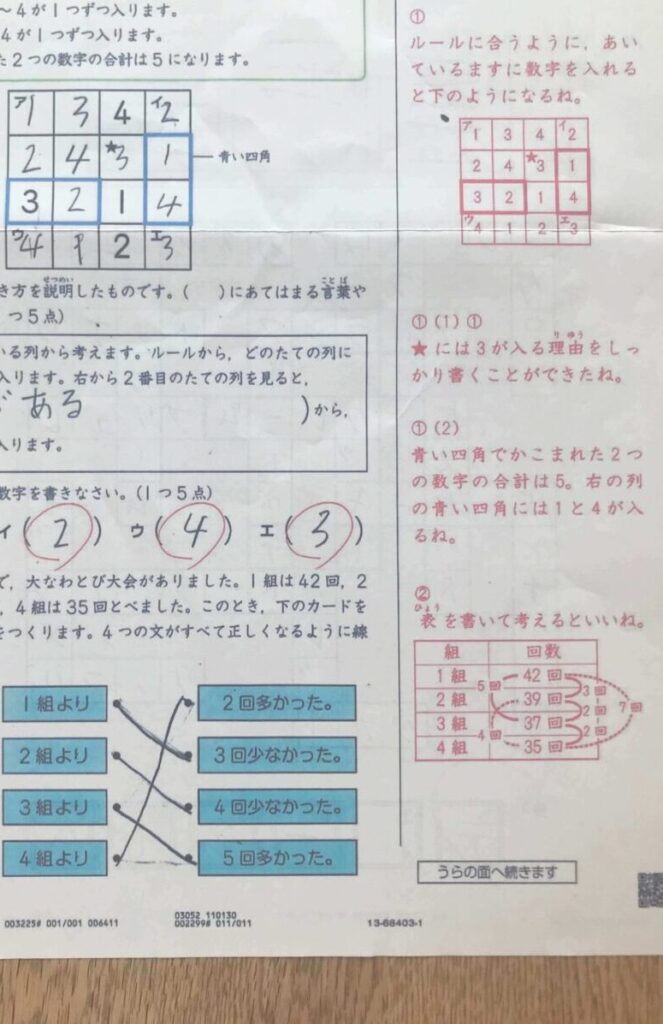 〜4が1つずつ入ります。
4が1つずつ入ります。
た2つの数字の合計は5になります。
ア1 3 4 イ2
2 4 ★3 1
3 2 1 4
ウ4 1 2 エ3
青い四角
き方を説明したものです。( )にあてはまる言葉や
せつめい
ことば
つ5点)
いる列から考えます。ルールから，どのたての列に
入ります。右から2番目のたての列を見ると，
がある
)から，
入ります。
数字を書きなさい。(1つ5点)
イ(2) ウ(4) エ(3)
で，大なわとび大会がありました。1組は42回，2
，4組は35回とべました。このとき，下のカードを
をつくります。4つの文がすべて正しくなるように線
1組より 2回多かった。
2組より 3回少なかった。
3組より 4回少なかった。
4組より 5回多かった。
003225# 001/001 006411
03052 110130
002299# 011/011
13-68403-1
①
ルールに合うように，あい
ているますに数字を入れる
と下のようになるね。
ア1 3 4 イ2
2 4 ★3 1
3 2 1 4
ウ4 1 2 エ3
①(1)①
★には3が入る理由をしっ
りゆう
かり書くことができたね。
①(2)
青い四角でかこまれた2つ
の数字の合計は5。右の列
の青い四角には1と4が入
るね。
②
ひょう
表を書いて考えるといいね。
組 回数
1組 42回
2組 39回
3組 37回
4組 35回
5回
4回
3回
2回
2回
7回
うらの面へ続きます